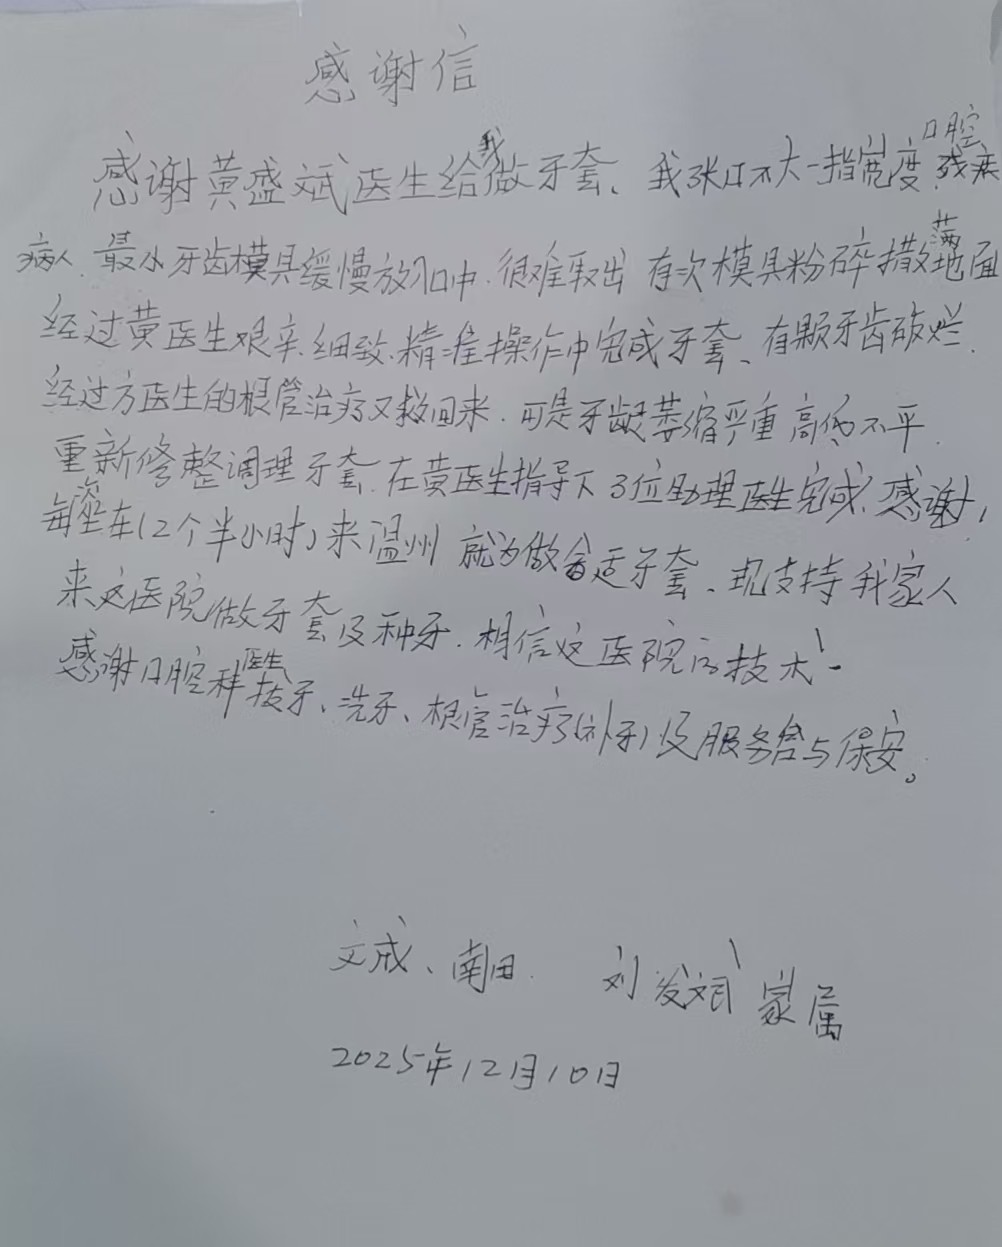 感谢信
感谢黄盛斌医生给我做牙套、我张口不大一指宽度口腔残疾
病人、最小牙齿模具缓慢放入口中.很难取出 有次模具粉碎撒满地面
经过黄医生艰辛.细致.精准操作中完成牙套、有颗牙齿破烂.
经过方医生的根管治疗又救回来.可是牙龈萎缩严重高低不平.
重新修整调理牙套.在黄医生指导下3位助理医生完成.感谢,
每次坐车(2个半小时)来温州 就为做合适牙套、现支持我家人
来这医院做牙套及种牙.相信这医院的技术!
感谢口腔科医生拔牙、洗牙、根管治疗(补牙)及服务台与保安。
文成、南田. 刘发斌家属
2025年12月10日